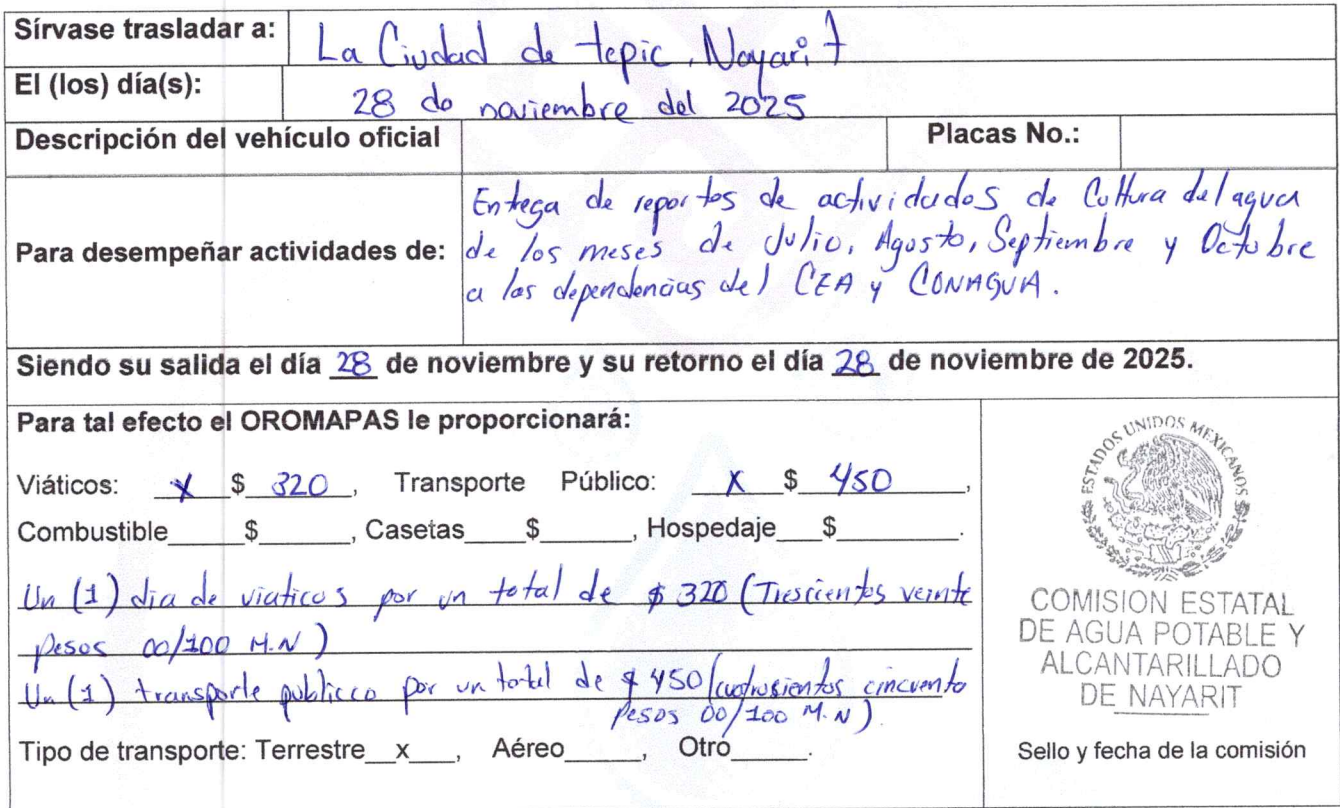 Sírvase trasladar a: La Ciudad de tepic, Nayarit
El (los) día(s): 28 de noviembre del 2025
Descripción del vehículo oficial Placas No.:
Para desempeñar actividades de:
Entega de reportes de actividades de Cultura del agua
de los meses de Julio, Agosto, Septiembre y Octubre
a las dependencias del CEA y CONAGUA.
Siendo su salida el día 28 de noviembre y su retorno el día 28 de noviembre de 2025.
Para tal efecto el OROMAPAS le proporcionará:
Viáticos: x $ 320, Transporte Público: x $ 450,
Combustible______$_______, Casetas____$______, Hospedaje___$________.
Un (1) dia de viaticos por un total de $ 320 (Trescientos veinte
pesos 00/100 M.N)
Un (1) transporte publicco por un total de $ 450 (cuatrosientos cincuenta
pesos 00/100 M.N)
Tipo de transporte: Terrestre__x___, Aéreo______, Otro______.
ESTADOS UNIDOS MEXICANOS
COMISION ESTATAL
DE AGUA POTABLE Y
ALCANTARILLADO
DE NAYARIT
Sello y fecha de la comisión